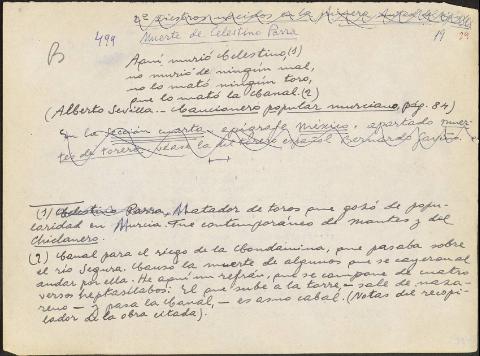 2ª diestros nacidos en la
499
19 29
B
Muerte de Celestino Parra
Aquí murió Celestino, (1)
no murió de ningún mal,
no lo mató ningún toro,
que lo mató la Canal. (2)
(Alberto Sevilla.- Cancionero popular murciano, pág. 84)
En la sección cuarta, epígrafe México, apartado muer-
tes de toreros, véase la del torero español Bernardo Gaviño.
(1) Celestino Parra. Matador de toros que gozó de popu-
laridad en Murcia. Fue contemporáneo de Montes y del
Chiclanero.
(2) Canal para el riego de la Condomina, que pasaba sobre
el río Segura. Causó la muerte de algunos que se cayeron al
andar por ella. He aquí un refrán, que se compone de cuatro
versos heptasílabos: El que sube a la torre, - sale de naza-
reno - y pasa la Canal, - es asno cabal. (Notas del recopi-
lador de la obra citada).